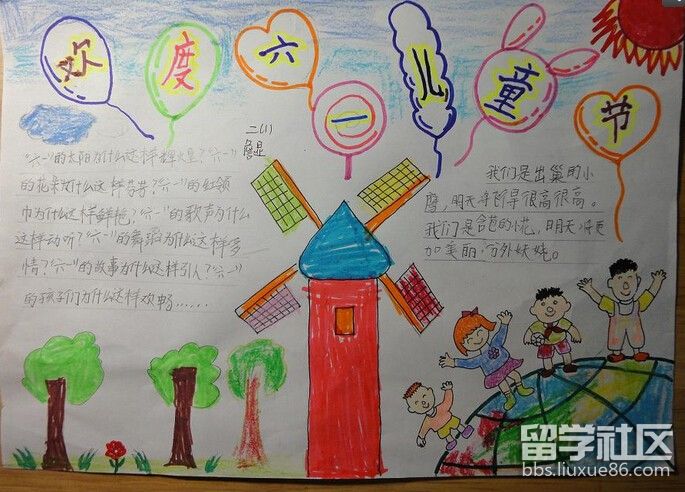 欢度六一儿童节
二(1)
詹昱
"六一"的太阳为什么这样辉煌?"六一"
的花朵为什么这样芬芳?"六一"的红领
巾为什么这样鲜艳?"六一"的歌声为什么
这样动听?"六一"的舞蹈为什么这样多
情?"六一"的故事为什么这样引人?"六一"
的孩子们为什么这样欢畅……
我们是出巢的小
鹰,明天将飞得很高很高。
我们是含苞的小花,明天将更
加美丽,分外妖娆。
留学社区
bbs.liuxue86.com